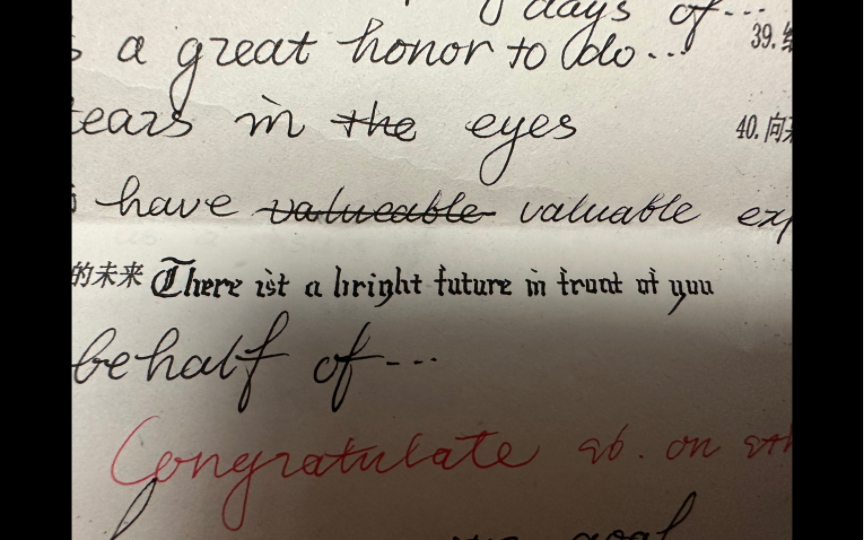 days of...
a great honor to do... 39.
tears in the eyes 40. 向
have valueable valuable
的未来 There ist a bright future in front of you
behalf of...
Congratulate sb. on sth
our goal